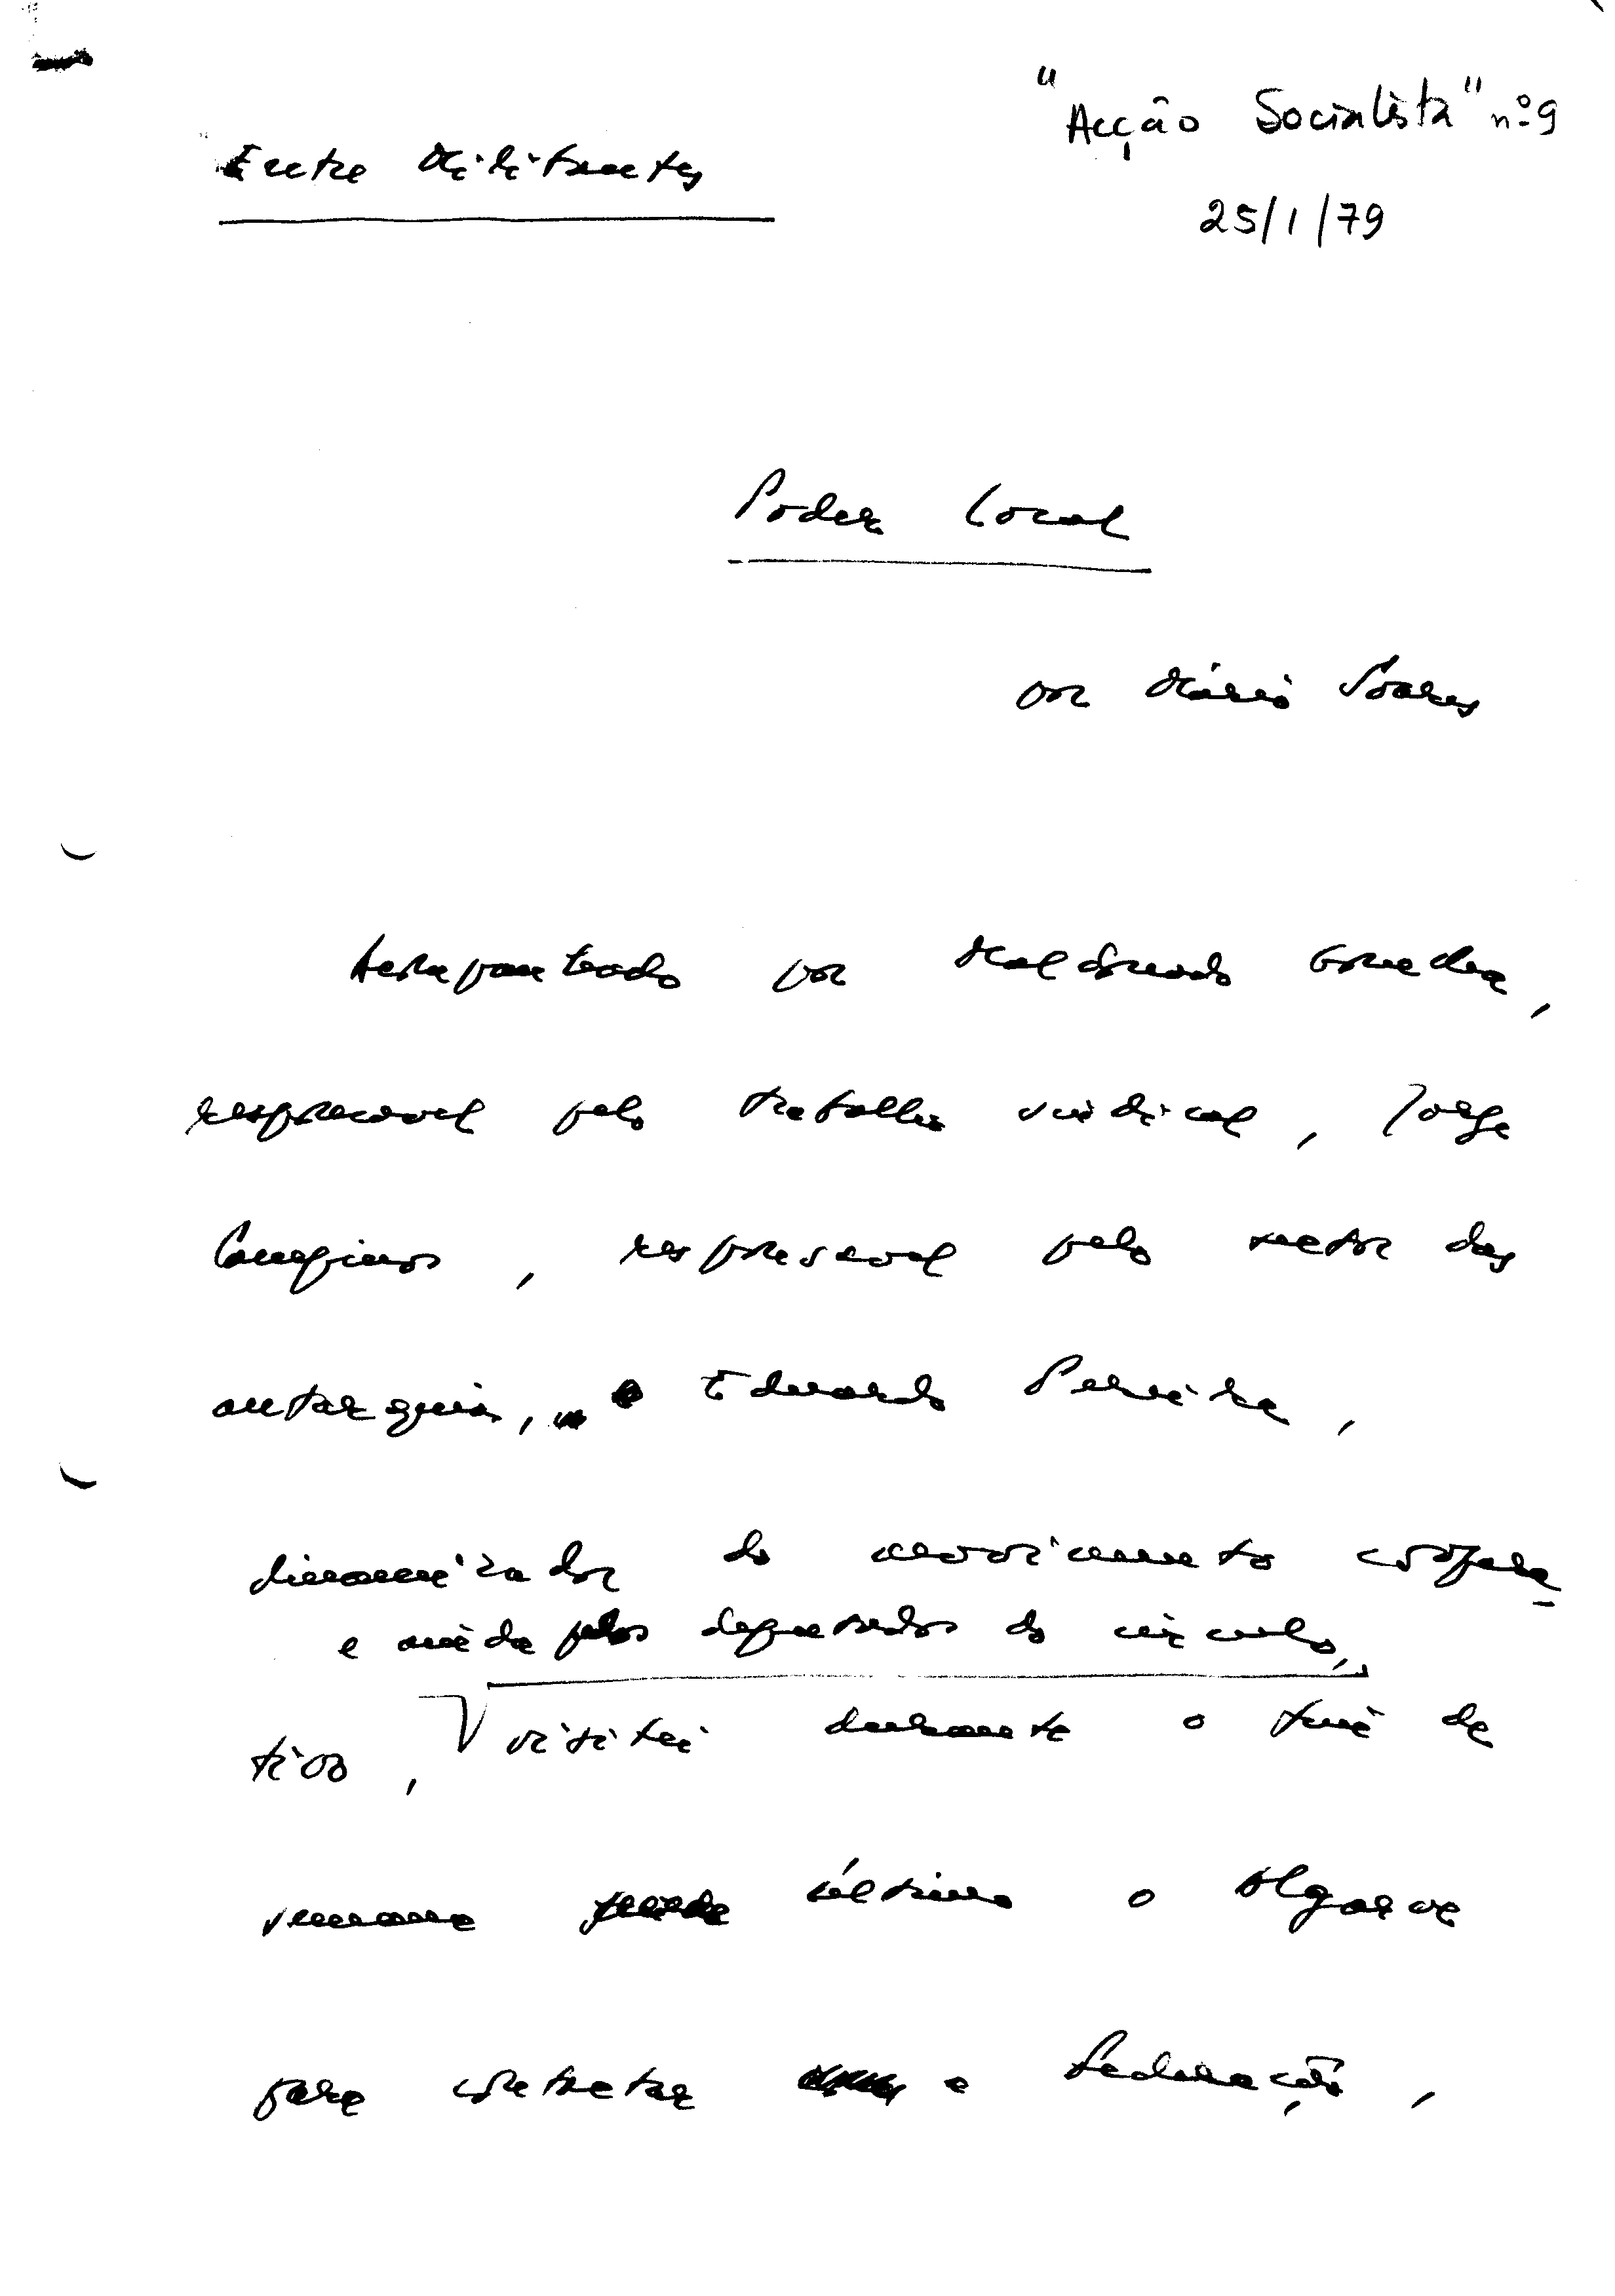 "Acção Socialista" nº 9
Entre Militantes
25/1/79
Poder Local
por Mário Soares
Acompanhado por Maldonado Gonelha,
responsavel pelo trabalho sindical, Jorge
Campinos, responsavel pelo sector das
autarquias, e Eduardo Pereira,
dinamizador do movimento coopera
e ainda pelos deputados do circulo,
tivo, visitei durante o fim de
semana último o Algarve
para contactar a Federação,